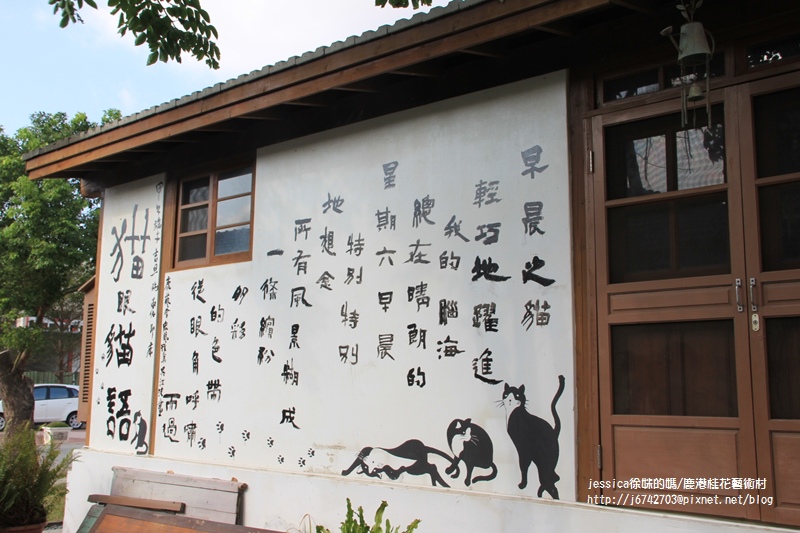 早晨之貓
輕巧地躍進
我的腦海
總在晴朗的
星期六早晨
特別特別
地想念
所有風景糊成
一條繽紛
多彩
的色帶
從眼角呼嘯
而過
貓眼
貓語
jessica徐咪的媽/鹿港桂花藝術村
http://j6742703@pixnet.net/blog